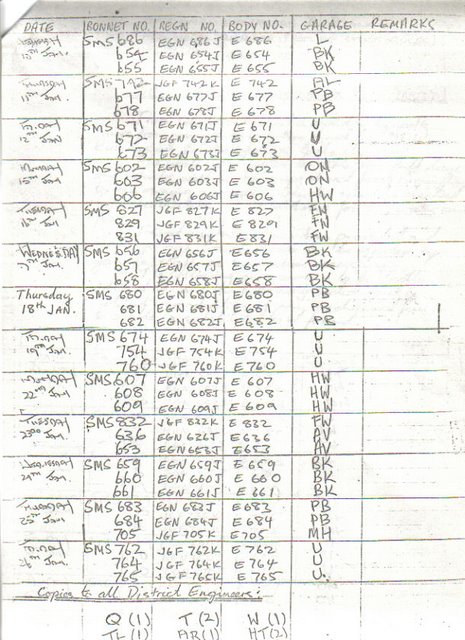 DATE BONNET NO. REGN NO. BODY NO. GARAGE REMARKS
SMS 686 EGN 686J E 686 L
10th Jan. 654 EGN 654J E 654 BK
655 EGN 655J E 655 BK
SMS 742 JGF 742K E 742 AL
11th Jan. 677 EGN 677J E 677 PB
678 EGN 678J E 678 PB
FRIDAY SMS 671 EGN 671J E 671 U
12th JAN 672 EGN 672J E 672 U
673 EGN 673J E 673 U
MONDAY SMS 602 EGN 602J E 602 ON
15th JAN. 603 EGN 603J E 603 ON
606 EGN 606J E 606 HW
TUESDAY SMS 827 JGF 827K E 827 FW
16th JAN. 829 JGF 829K E 829 FW
831 JGF 831K E 831 FW
WEDNESDAY SMS 656 EGN 656J E 656 BK
Jan. 657 EGN 657J E 657 BK
658 EGN 658J E 658 BK
Thursday SMS 680 EGN 680J E 680 PB
18th JAN. 681 EGN 681J E 681 PB
682 EGN 682J E 682 PB
FRIDAY SMS 674 EGN 674J E 674 U
19th JAN. 754 JGF 754K E 754 U
760 JGF 760K E 760 U
MONDAY SMS 607 EGN 607J E 607 HW
22nd JAN. 608 EGN 608J E 608 HW
609 EGN 609J E 609 HW
TUESDAY SMS 832 JGF 832K E 832 FW
23rd Jan. 636 EGN 636J E 636 AV
653 EGN 653J E 653 AV
WEDNESDAY SMS 659 EGN 659J E 659 BK
24th JAN. 660 EGN 660J E 660 BK
661 EGN 661J E 661 BK
THURSDAY SMS 683 EGN 683J E 683 PB
25th JAN. 684 EGN 684J E 684 PB
705 JGF 705K E 705 MH
FRIDAY SMS 762 JGF 762K E 762 U
26th JAN. 764 JGF 764K E 764 U
765 JGF 765K E 765 U.
Copies to all District Engineers:
Q (1) T (2) W (1)
TL (1) AR (1) HT (2)